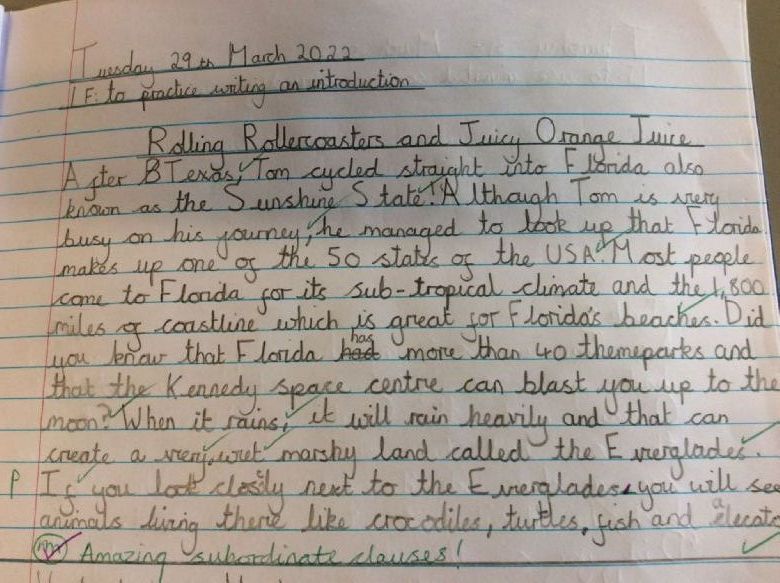 Tuesday 29th March 2022
LF: to practice writing an introduction
Rolling Rollercoasters and Juicy Orange Juice
After Texas, Tom cycled straight into Florida also
known as the Sunshine State. Although Tom is very
busy on his journey, he managed to look up that Florida
makes up one of the 50 states of the USA. Most people
come to Florida for its sub-tropical climate and the 1,800
miles of coastline which is great for Florida's beaches. Did
you know that Florida has more than 40 themeparks and
that the Kennedy space centre can blast you up to the
moon? When it rains, it will rain heavily and that can
create a very, wet marshy land called the Everglades.
P If you look closily next to the Everglades, you will see
animals living there like crocodiles, turtles, fish and
Amazing subordinate clauses!